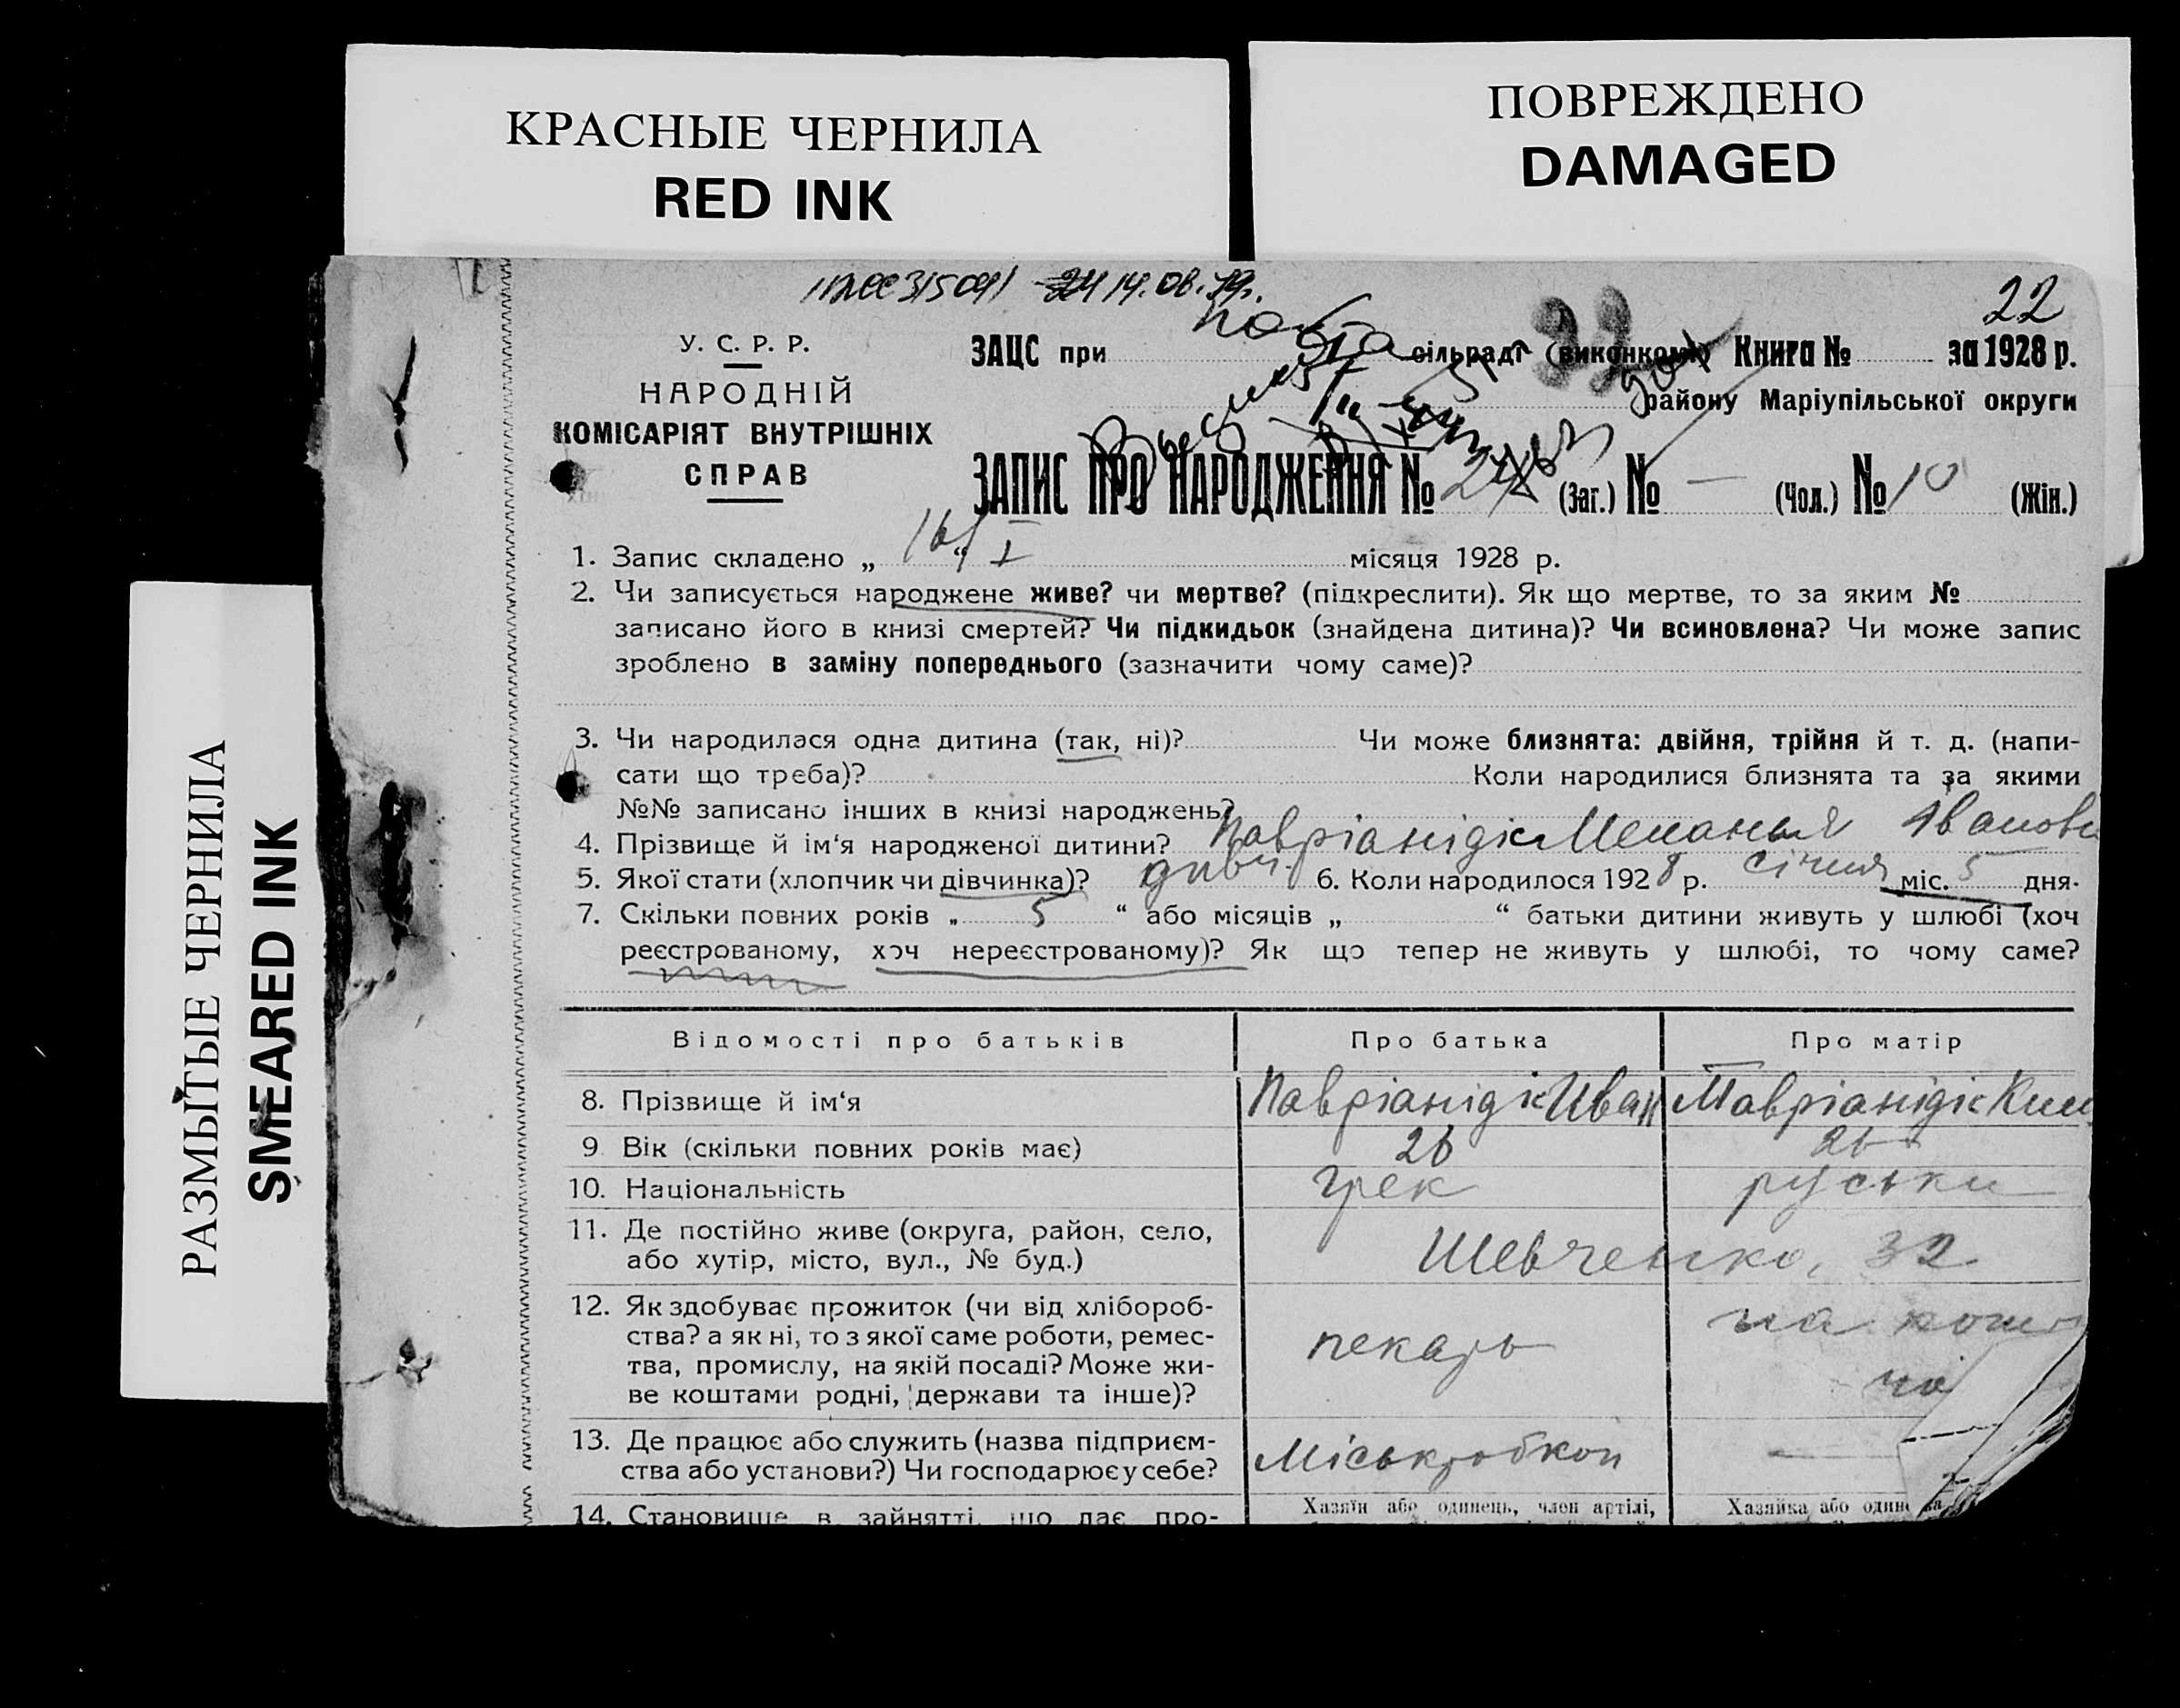 КРАСНЫЕ ЧЕРНИЛА
RED INK
ПОВРЕЖДЕНО
DAMAGED
РАЗМЫТЫЕ ЧЕРНИЛА
SMEARED INK
14.08.
22
У. С. Р. Р.
НАРОДНІЙ
КОМІСАРІЯТ ВНУТРІШНІХ
СПРАВ
ЗАЦС при сільраді (виконкомі) Книга № за 1928 р.
району Маріупільської округи
ЗАПИС ПРО НАРОДЖЕННЯ № 24 (Заг.) № — (Чол.) № 10 (Жін.)
1. Запис складено „ 16 “ I місяця 1928 р.
2. Чи записується народжене живе? чи мертве? (підкреслити). Як що мертве, то за яким №
записано його в книзі смертей? Чи підкидьок (знайдена дитина)? Чи всиновлена? Чи може запис
зроблено в заміну попереднього (зазначити чому саме)?
3. Чи народилася одна дитина (так, ні)? Чи може близнята: двійня, трійня й т. д. (напи-
сати що треба)? Коли народилися близнята та за якими
№№ записано інших в книзі народжень?
4. Прізвище й ім‘я народженої дитини? Мавріанідіс Меланья Іванов
5. Якої стати (хлопчик чи дівчинка)? дивч. 6. Коли народилося 1928 р. січня міс. 5 дня.
7. Скільки повних років „ 5 “ або місяців „ “ батьки дитини живуть у шлюбі (хоч
реєстрованому, хоч нереєстрованому)? Як що тепер не живуть у шлюбі, то чому саме?
Відомості про батьків Про батька Про матір
8. Прізвище й ім‘я Мавріанідіс Иван Мавріанідіс
9. Вік (скільки повних років має) 26 26
10. Національність грек руськи
11. Де постійно живе (округа, район, село,
або хутір, місто, вул., № буд.) Шевченко, 32
12. Як здобуває прожиток (чи від хлібороб-
ства? а як ні, то з якої саме роботи, ремес-
тва, промислу, на якій посаді? Може жи-
ве коштами родні, держави та інше)? пекарь на кошт
13. Де працює або служить (назва підприєм-
ства або установи?) Чи господарює у себе? Міськробкоп —
14. Становище в зайнятті, що дає про- Хазяїн або одинець, член артілі, Хазяйка або один